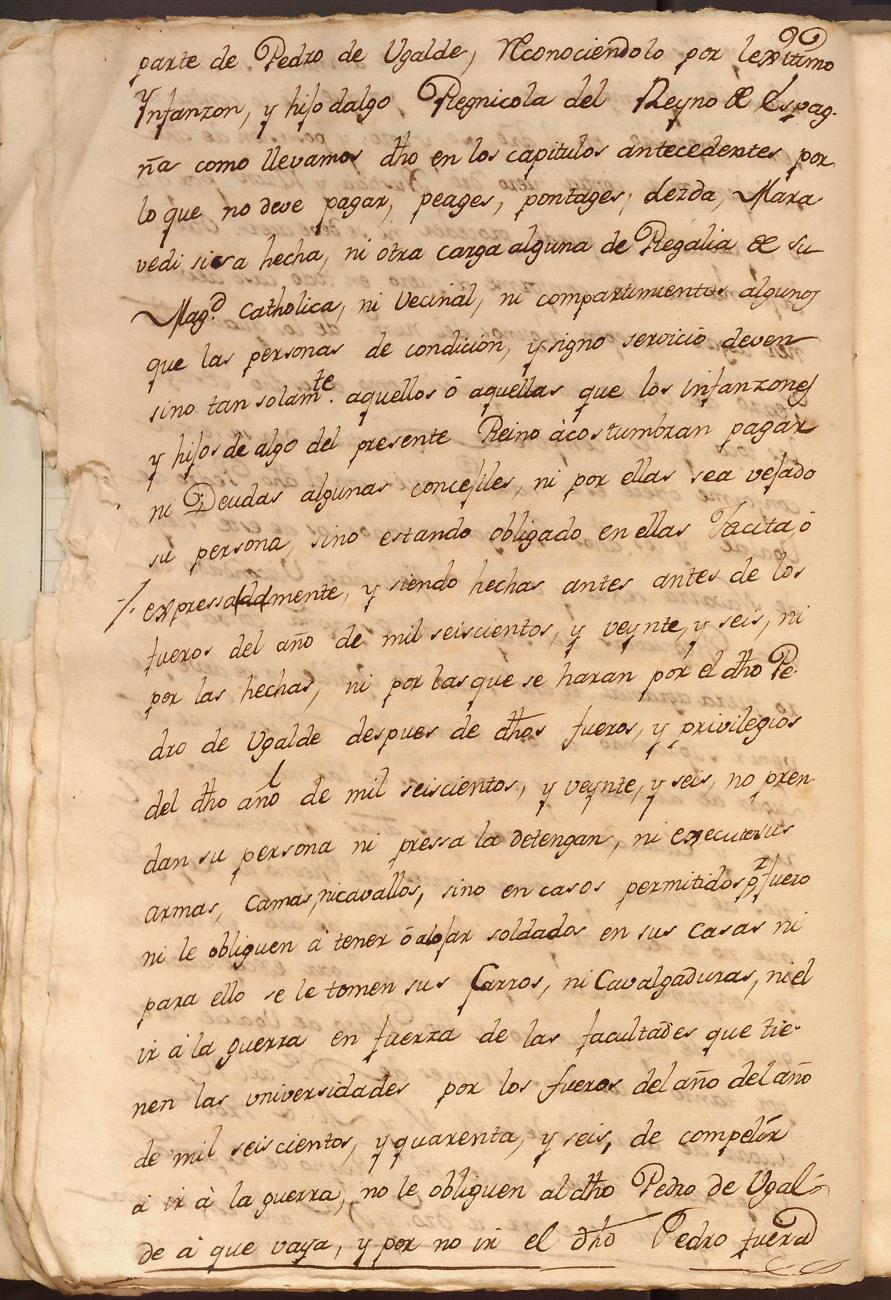 parte de Pedro de Ugalde, Reconociendolo por lexitimo
Ynfanzon, y hijo dalgo Regnicola del Reyno de Espag-
ña como llevamos dho en los capitulos antecedentes por
lo que no deve pagar, peages, pontages, Lezda, Mara
vedi si era hecha, ni otra carga alguna de Regalia de su
Mag.d Catholica, ni Vecinal, ni compartimientos algunos
que las personas de condición, y signo servicio deven
sino tan solam.te aquellos ó aquellas que los infanzones
y hijos de algo del presente Reino acostumbran pagar
ni Deudas algunas concejiles, ni por ellas sea vejado
su persona, sino estando obligado en ellas Tacita, ó
expressadamente, y siendo hechas antes antes de los
fueros del año de mil seiscientos, y veynte, y seis, ni
por las hechas, ni por las que se haran por el dho Pe-
dro de Ugalde despues de dhos fueros, y privilegios
del dho año de mil seiscientos, y veynte, y seis, no pren-
dan su persona ni pressa la detengan, ni executen sus
armas, Camas, ni cavallos, sino en casos permitidos pr fuero
ni le obliguen á tener ó alojar soldados en sus casas ni
para ello se le tomen sus Carros, ni Cavalgaduras, ni el
ir á la guerra en fuerza de las facultades que tie-
nen las universidades por los fueros del año del año
de mil seiscientos, y quarenta, y seis, de compelir
á ir á la guerra, no le obliguen al dho Pedro de Ugal-
de á que vaya, y por no ir el dho Pedro fuera